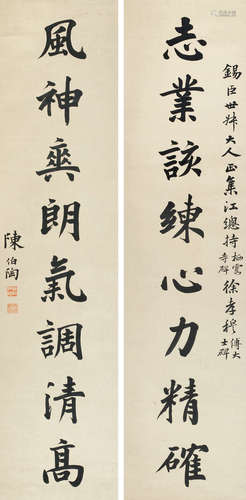 志業該練心力精確
錫臣世叔大人正集江總持棲霞寺碑徐孝穆傅大士碑
風神爽朗氣調清高
陳伯陶